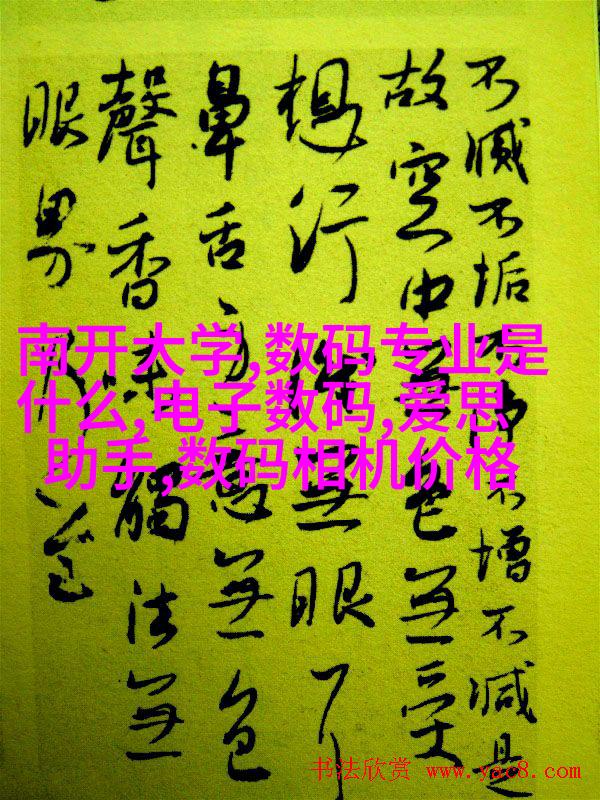 不滅不垢不淨不增不減是
故空中無色無受
想行識無眼耳
鼻舌身意無色
聲香味觸法無
眼界
南开大学,数码专业是
什么,电子数码,爱思
助手,数码相机价格
书法欣赏 www.yac8.com